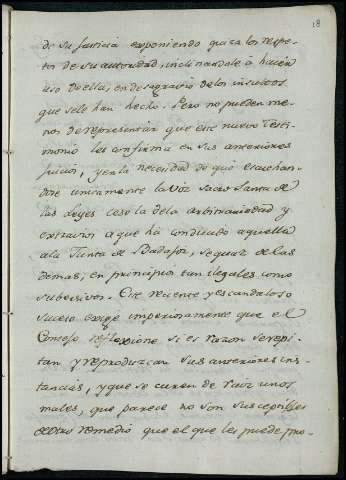 18
de su Justicia exponiendo quiza los respe-
tos de su autoridad, inclinandole á hacer
uso de ella, en desagravio de los insultos
que se le han hecho. Pero no pueden me-
nos de representar que este nuevo testi-
monio les confirma en sus anteriores
juicios, y en la necesidad de que escuchan-
dose unicamente la voz Sacro Santa de
las Leyes cese la de la arbitrariedad y
extravios a que ha conducido aquella
a la Junta de Badajoz, sequaz de las
demas, en principios tan ilegales como
subversivos. Este reciente y escandaloso
suceso exige imperiosamente que el
Consejo reflexione si es razon se repi-
tan y reproduzcan sus anteriores ins-
tancias, y que se curen de raiz unos
males, que parece no son susceptibles
de otro remedio que el que les puede pro-